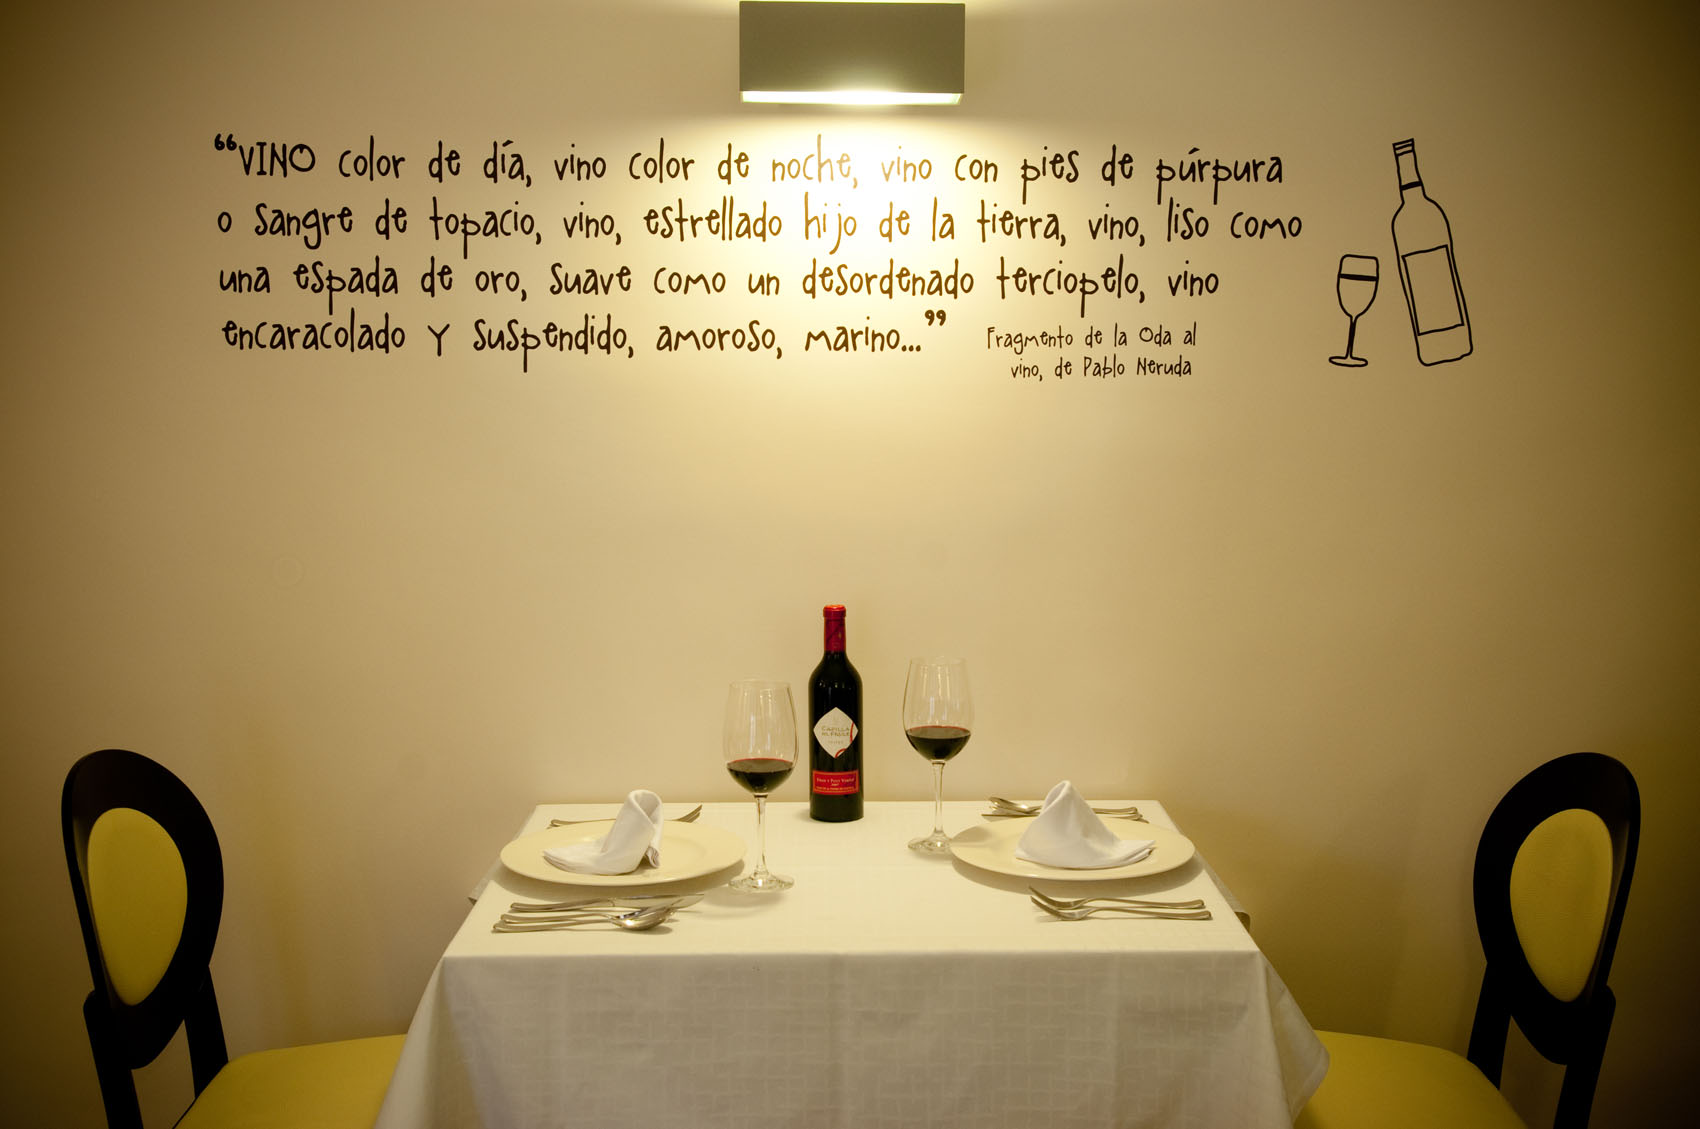 “VINO color de día, vino color de noche, vino con pies de púrpura
o sangre de topacio, vino, estrellado hijo de la tierra, vino, liso como
una espada de oro, suave como un desordenado terciopelo, vino
encaracolado y suspendido, amoroso, marino...”
Fragmento de la Oda al
vino, de Pablo Neruda
CAPILLA
DEL FRAILE